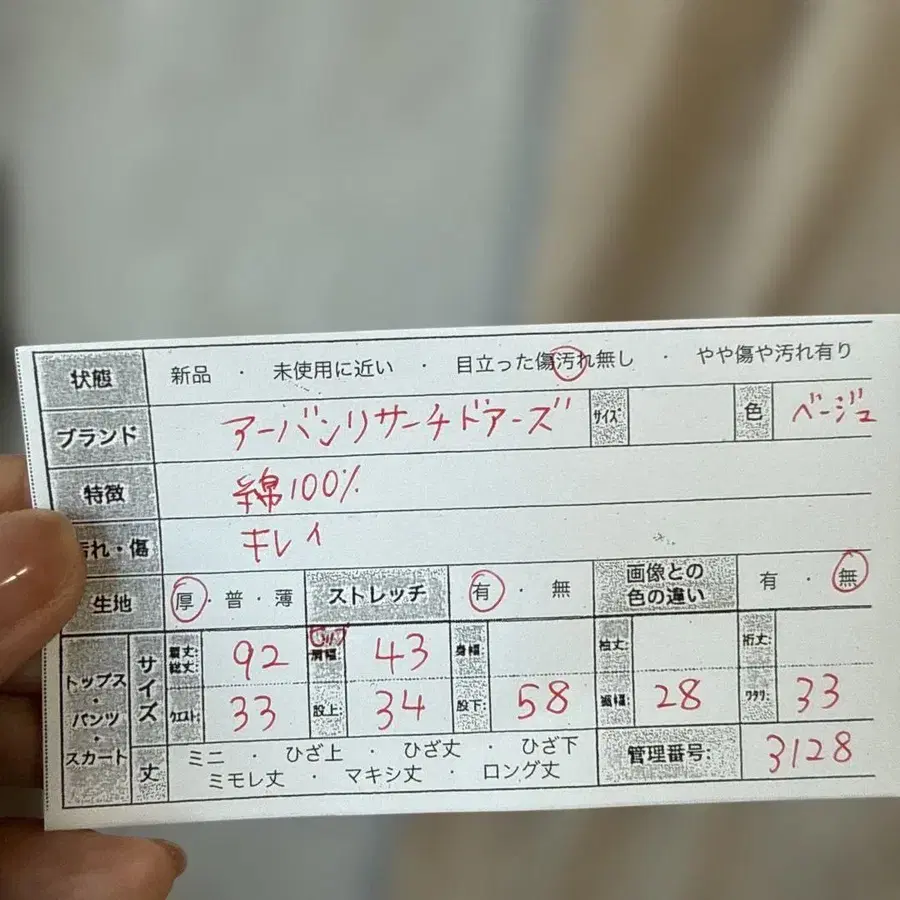 状態 新品 ・ 未使用に近い ・ 目立った傷汚れ無し ・ やや傷や汚れ有り
ブランド アーバンリサーチドアーズ サイズ: 色 ベージュ
特徴 綿100%
汚れ・傷 キレイ
生地 厚・普・薄 ストレッチ 有・無 画像との色の違い 有・無
トップス・パンツ・スカート サイズ 着丈:総丈: 92 肩幅: 43 身幅: 袖丈: 裄丈:
ウエスト: 33 股上: 34 股下: 58 裾幅: 28 ワタリ: 33
丈 ミニ ・ ひざ上 ・ ひざ丈 ・ ひざ下
ミモレ丈 ・ マキシ丈 ・ ロング丈 管理番号: 3128